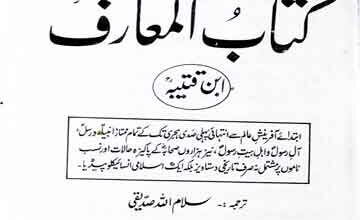 کتاب المعارف
ابن قتیبہؒ
ابتدائے آفرینشِ عالم سے انتہائی پہلی صدی ہجری تک کے تمام ممتاز انبیاؑء ورسلؑ،
آلِ رسولؐ و اہل بیتِ رسولؐ، نیز ہزاروں صحابہؓ کے پاکیزہ حالات اور نسب
ناموں پر مشتمل نہ صرف تاریخی دستاویز بلکہ ایک اسلامی انسائیکلوپیڈیا۔
ترجمہ :۔ سلام اللہ صدیقی